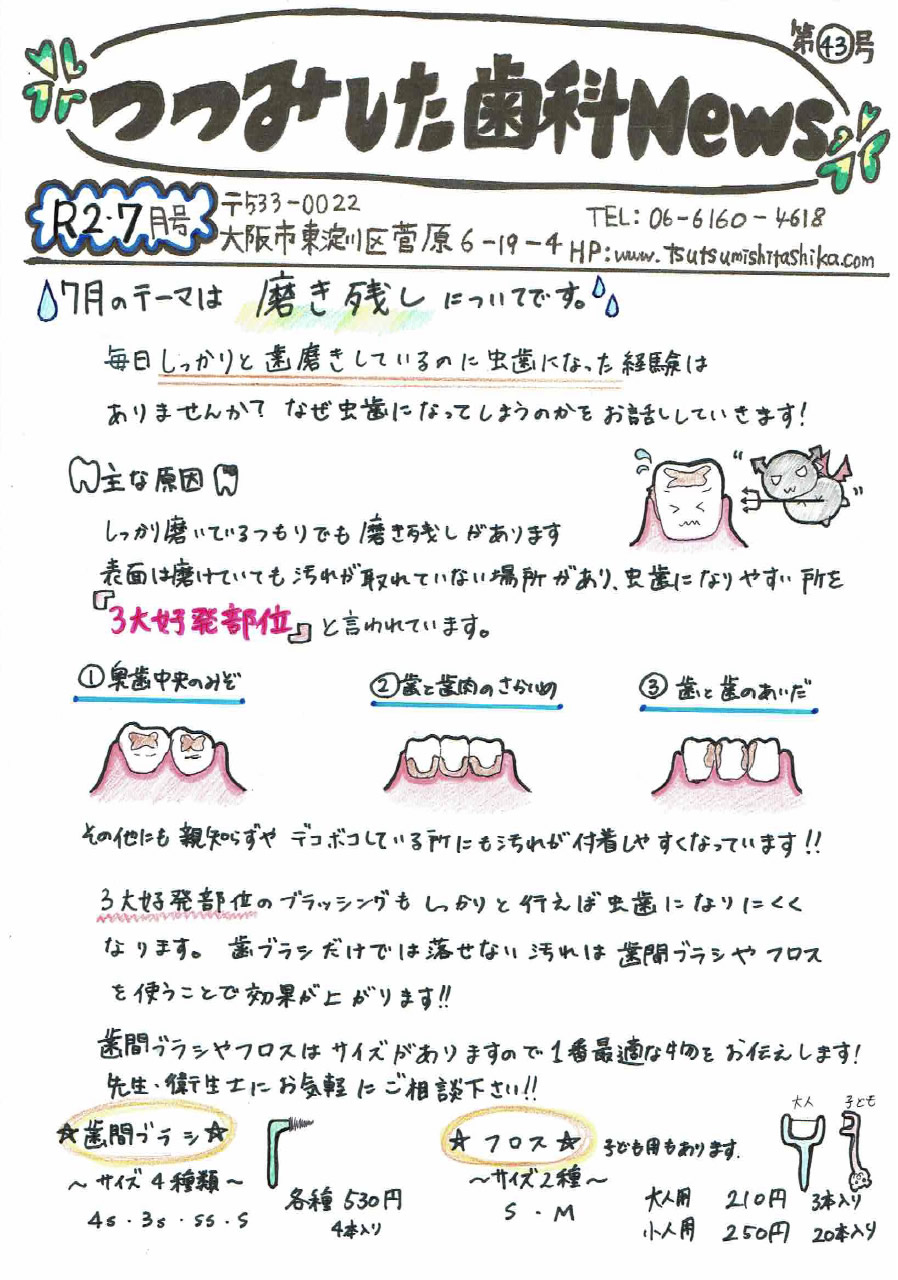 第㊸号
つつみした歯科News
R2・7月号
〒533-0022
大阪市東淀川区菅原6-19-4
TEL:06-6160-4618
HP:www.tsutsumishitashika.com
7月のテーマは 磨き残し についてです。
毎日しっかりと歯磨きしているのに虫歯になった経験は
ありませんか? なぜ虫歯になってしまうのかをお話ししていきます!
主な原因
しっかり磨いているつもりでも磨き残しがあります
表面は磨けていても汚れが取れていない場所があり、虫歯になりやすい所を
『3大好発部位』と言われています。
①奥歯中央のみぞ
②歯と歯肉のさかいめ
③歯と歯のあいだ
その他にも親知らずやデコボコしている所にも汚れが付着しやすくなっています!!
3大好発部位のブラッシングもしっかりと行えば虫歯になりにくく
なります。歯ブラシだけでは落せない汚れは歯間ブラシやフロス
を使うことで効果が上がります!!
歯間ブラシやフロスはサイズがありますので1番最適な物をお伝えします!
先生・衛生士にお気軽にご相談下さい!!
☆歯間ブラシ☆
～サイズ4種類～
4s・3s・ss・s
各種 530円
4本入り
☆フロス☆
子ども用もあります.
～サイズ2種～
S・M
大人
子ども
大人用 210円 3本入り
小人用 250円 20本入り